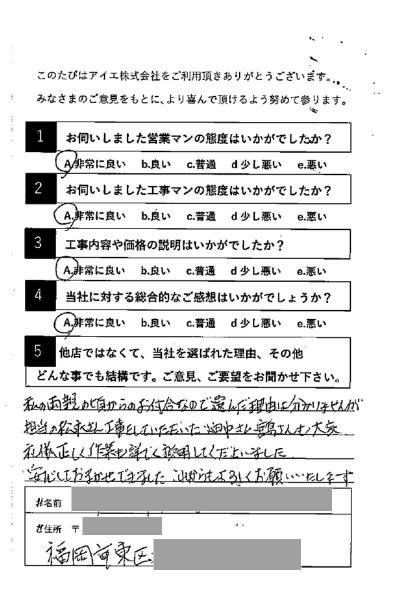 このたびはアイエ株式会社をご利用頂きありがとうございます。
みなさまのご意見をもとに、より喜んで頂けるよう努めて参ります。
1 お伺いしました営業マンの態度はいかがでしたか？
A.非常に良い b.良い c.普通 d 少し悪い e.悪い
2 お伺いしました工事マンの態度はいかがでしたか？
A.非常に良い b.良い c.普通 d 少し悪い e.悪い
3 工事内容や価格の説明はいかがでしたか？
A.非常に良い b.良い c.普通 d 少し悪い e.悪い
4 当社に対する総合的なご感想はいかがでしょうか？
A.非常に良い b.良い c.普通 d 少し悪い e.悪い
5 他店ではなくて、当社を選ばれた理由、その他
どんな事でも結構です。ご意見、ご要望をお聞かせ下さい。
私の両親の頃からのお付合なので選んだ理由は分かりませんが
担当の松本さん工事をしていただいた田中さん さんも大変
礼儀正しく作業も詳しく説明してくださいました
安心しておまかせできました これからもよろしくお願いいたします
お名前
ご住所 〒
福岡市東区